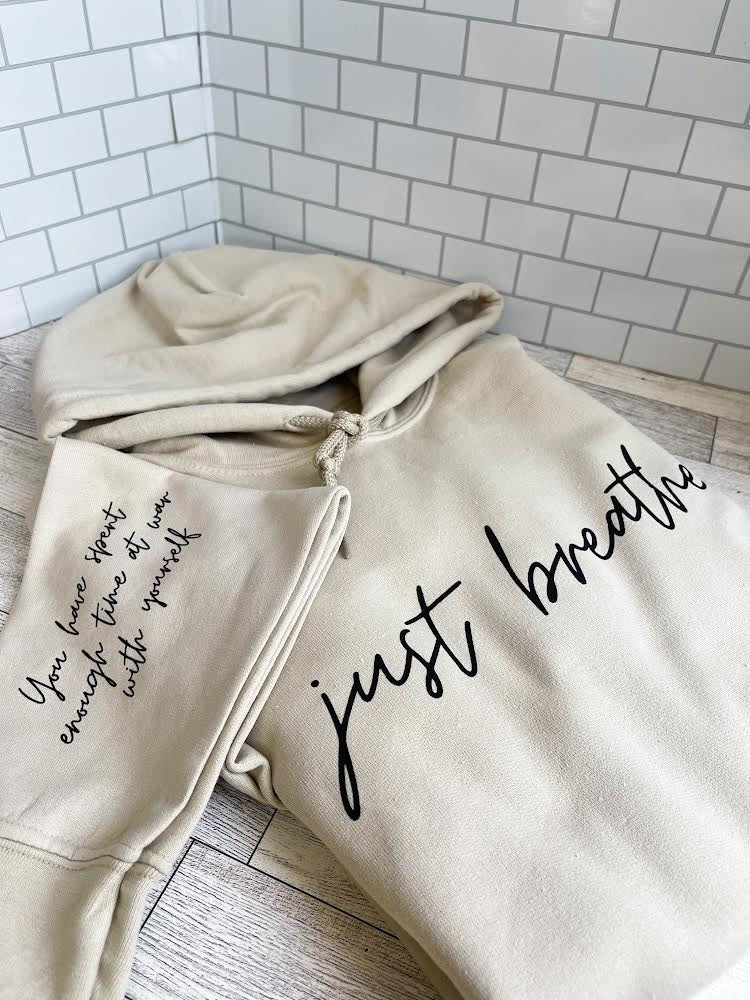 You have spent
enough time at war
with yourself
just breathe